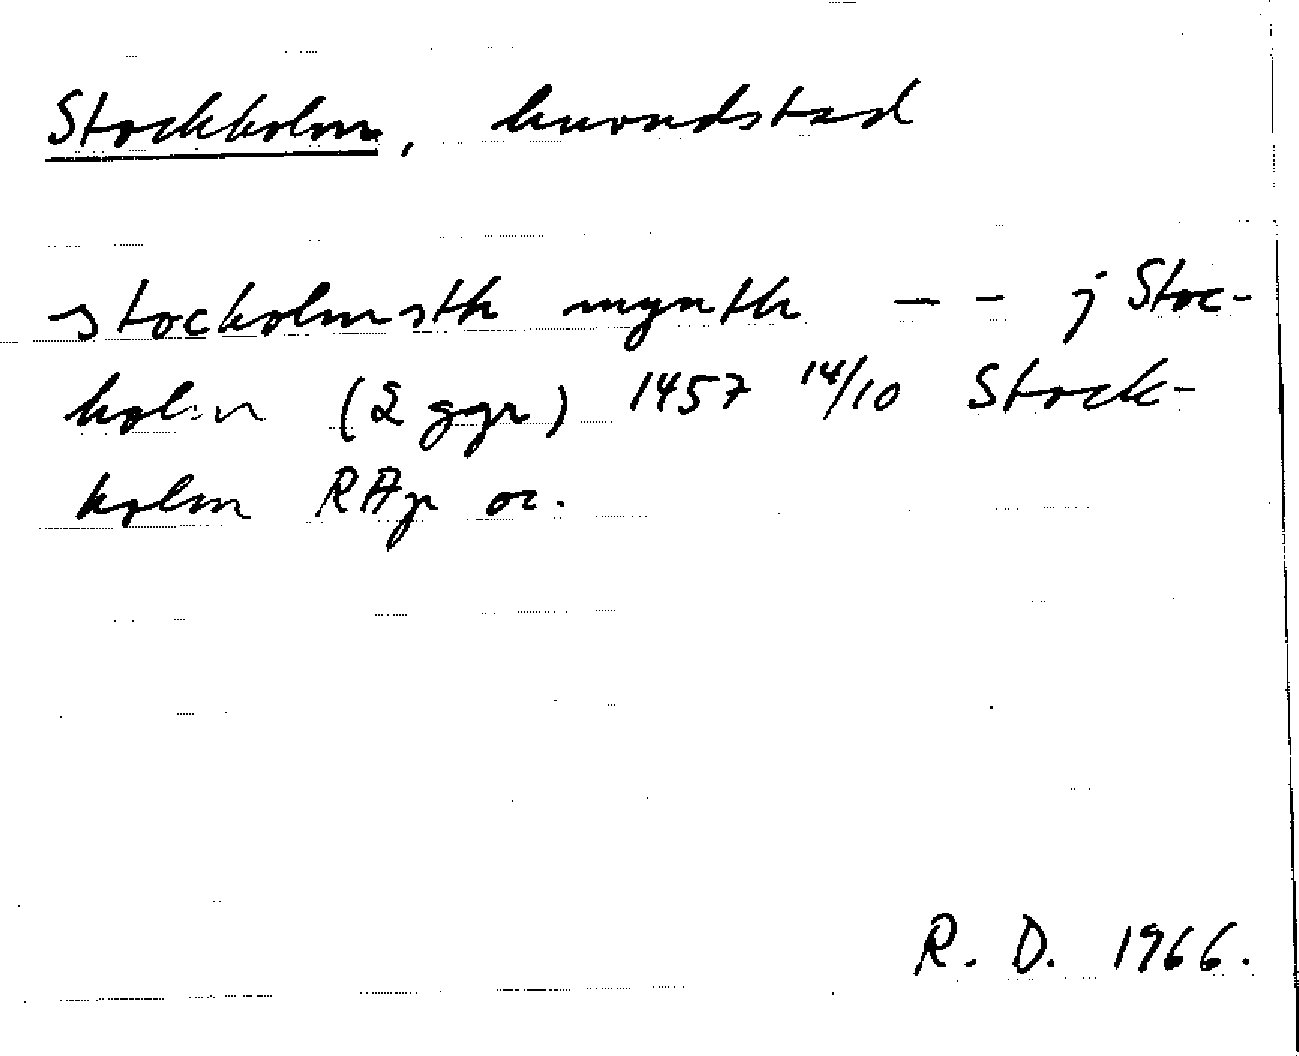 Stockholm, huvudstad
stocholmsth mynth – – j Stoc-
holm (2 ggr) 1457 14/10 Stock-
holm RAp or.
R. D. 1966.